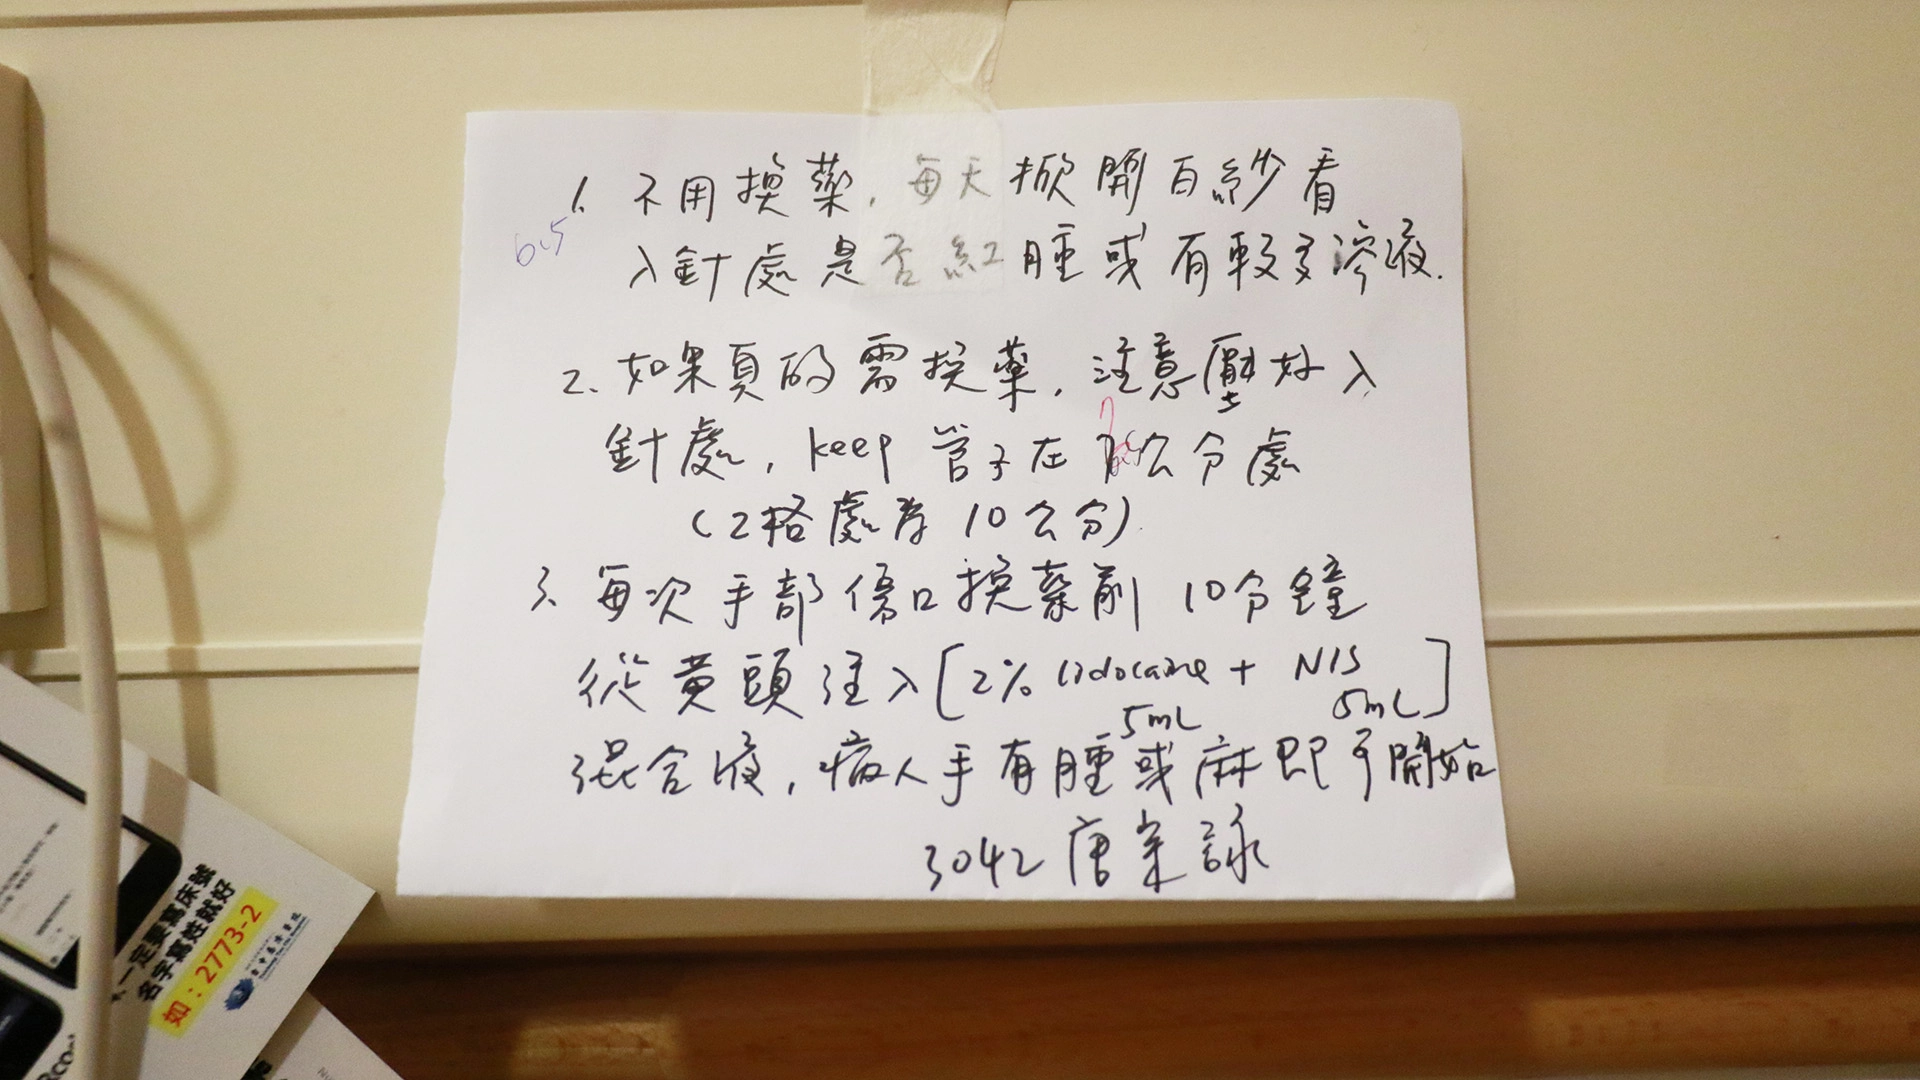 1. 不用換藥, 每天掀開百紗看
6.5
入針處是否紅腫或有較多滲液.
2. 如果真的需換藥, 注意壓好入
針處, keep 管子在 公分處
(2格處為 10 公分)
3. 每次手部傷口換藥前 10分鐘
從黃頭注入[2% lidocaine + N/S]
5mL 5mL
混合液, 病人手有腫或麻即可開始
3042 唐 詠
一定要寫床號
名字寫姓就好
如:2773-2